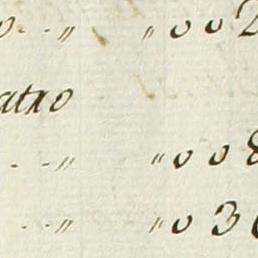 〃 〃 0 0 2
atro
〃 〃 0 0 8
〃 〃 0 3